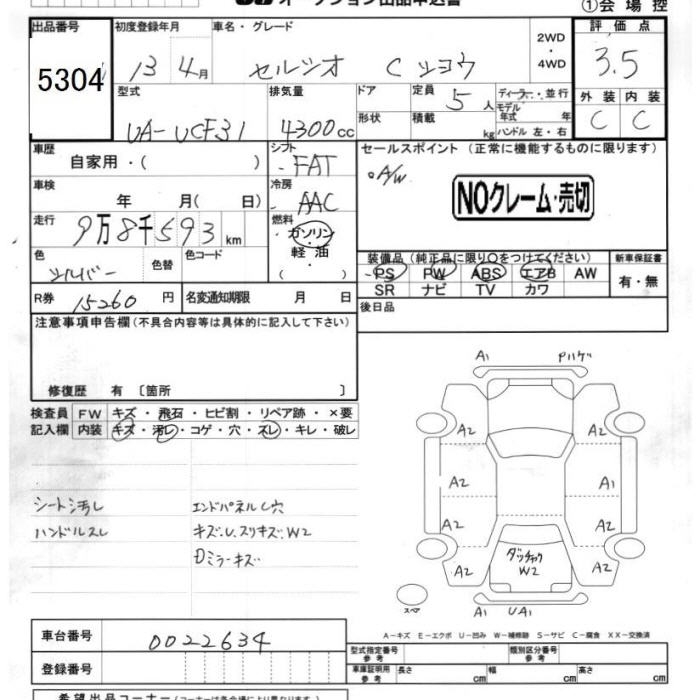 オークション出品申込書
①会場控
出品番号 初度登録年月 車名・グレード 2WD ・ 4WD 評価点
5304 13 4月 セルシオ Cシヨウ 3.5
型式 排気量 ドア 定員 5人 ディーラー・並行 外装 内装
UA-UCF31 4300cc 形状 積載 kg モデル年式 年 C C
ハンドル 左・右
車歴 シフト セールスポイント (正常に機能するものに限ります)
自家用・( ) FAT 。A/W
車検 冷房 NOクレーム・売切
年 月( 日) AAC
走行 燃料
9万8千593km ガソリン
色 色替 色コード 軽油 装備品(純正品に限り○をつけてください) 新車保証書
シルバー ( ) PS PW ABS エアB AW 有・無
SR ナビ TV カワ
R券 15260円 名変通知期限 月 日 後日品
注意事項申告欄(不具合内容等は具体的に記入して下さい)
修復歴 有 [箇所 ]
検査員 FW キズ・飛石・ヒビ割・リペア跡・×要
記入欄 内装 キズ・汚レ・コゲ・穴・スレ・キレ・破レ
シート汚し エンドパネルC穴
ハンドルスレ キズ.U.スリキズ.W2
Dミラーキズ
A1 Pハゲ
A2 A2
A2 A1
A2 A2
ダッチャク
W2
A2 A2
スペア A1 UA1
A-キズ E-エクボ U-凹み W-補修跡 S-サビ C-腐食 XX-交換済
車台番号 0022634 型式指定番号 参考 類別区分番号 参考
登録番号 車庫証明用 参考 長さ cm 幅 cm 高さ cm
希望出品コーナー (コーナーは会場により異なります)